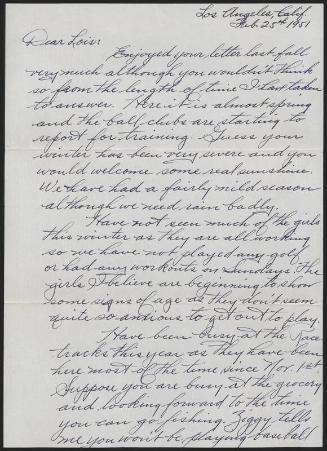 Los Angeles, Calif.
Feb. 25th 1951
Dear Lois:
Enjoyed your letter last fall
very much although you wouldn't think
so from the length of time I have taken
to answer. Here it is almost spring
and the ball clubs are starting to
report for training. Guess your
winter has been very severe and you
would welcome some real sunshine.
We have had a fairly mild season
although we need rain badly.
Have not seen much of the girls
this winter as they are all working
so we have not played any golf
or had any workouts on Sundays. The
girls I believe are beginning to show
some signs of age as they don't seem
quite so anxious to get out to play.
Have been busy at the Race
tracks this year as they have been
here most of the time since Nov. 1st
Suppose you are busy at the grocery
and looking forward to the time
you can go fishing. Ziggy tells
me you won't be playing baseball